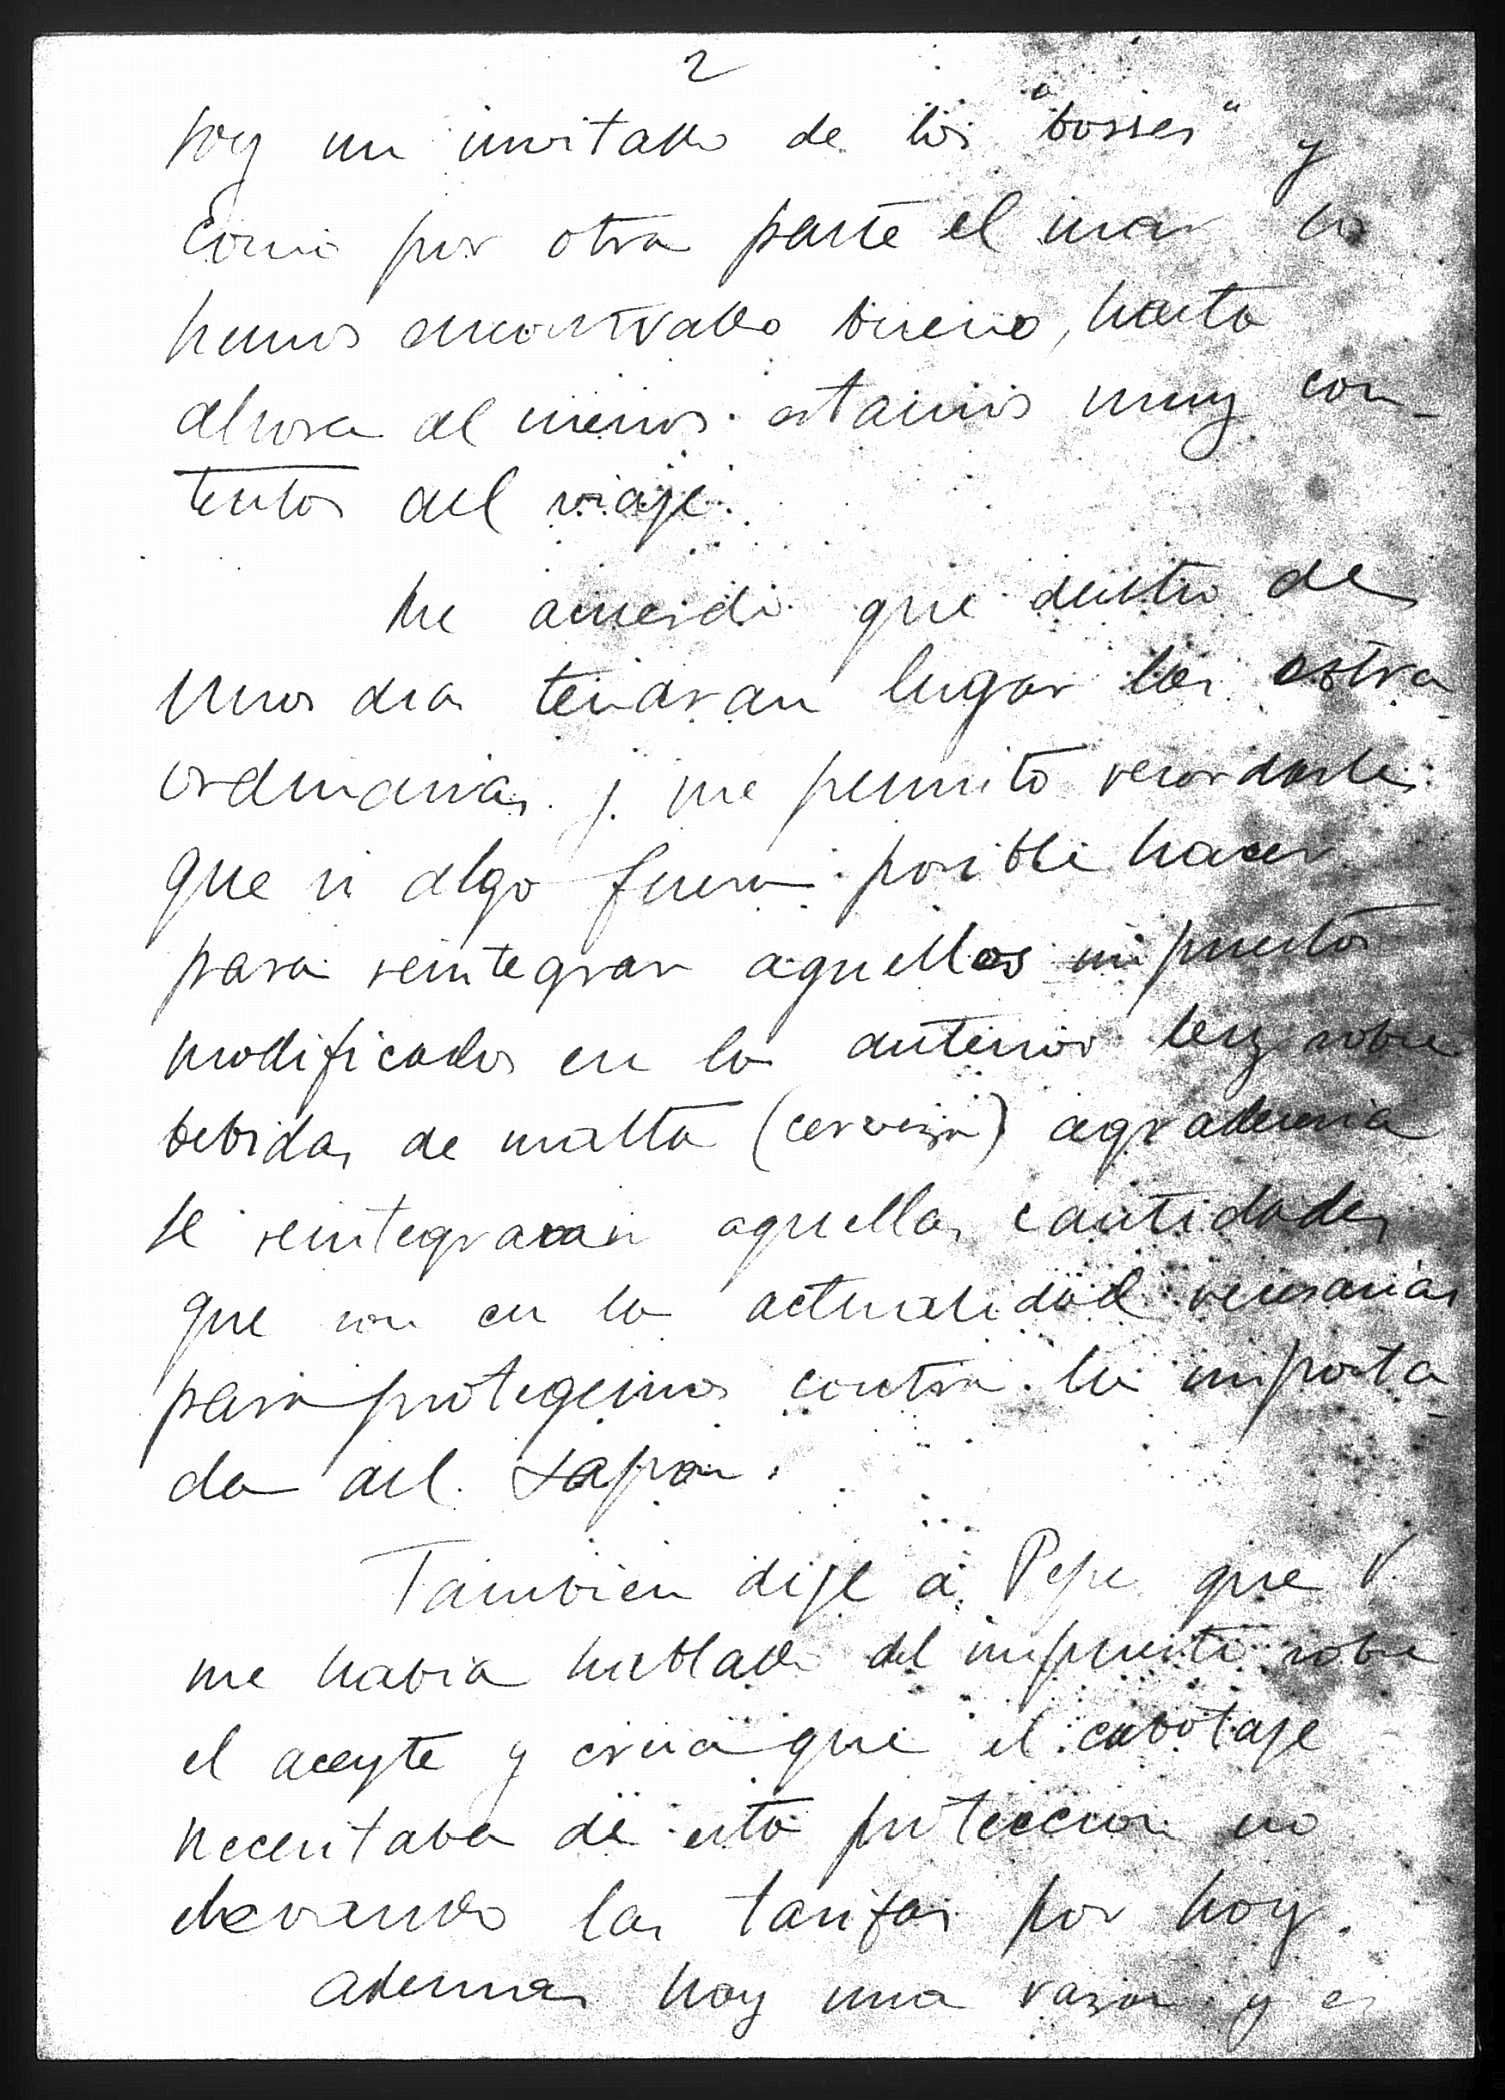 2
soy un invitado de los "bosses" y
como por otra parte el mar lo
hemos encontrado bueno, hasta
ahora al menos estamos muy con-
tentos del viaje.
Me acuerdo que dentro de
unos dias tendran lugar las extra
ordinarias y me permito recordarle
que si algo fuera posible hacer
para reintegrar aquellos impuestos
modificados en la anterior ley sobre
bebidas de malta (cerveza) agradeceria
se reintegraran aquellas cantidades
que son en la actualidad necesarias
para protegernos contra la importa-
da del Japon.
Tambien dije a Pepe que V.
me habia hablado del impuesto sobre
el aceyte y creia que el cabotaje
necesitaba de esta proteccion no
elevando las tarifas por hoy.
Ademas hay una razon y es